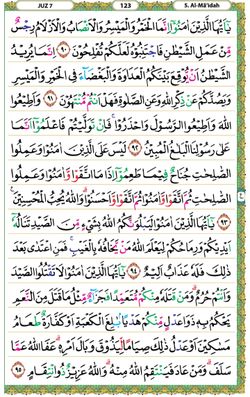 JUZ 7 123 5. Al-Mā'idah
يٰٓاَيُّهَا الَّذِيْنَ اٰمَنُوْٓا اِنَّمَا الْخَمْرُ وَالْمَيْسِرُ وَالْاَنْصَابُ وَالْاَزْلَامُ رِجْسٌ
مِّنْ عَمَلِ الشَّيْطٰنِ فَاجْتَنِبُوْهُ لَعَلَّكُمْ تُفْلِحُوْنَ ٩٠ اِنَّمَا يُرِيْدُ
الشَّيْطٰنُ اَنْ يُّوْقِعَ بَيْنَكُمُ الْعَدَاوَةَ وَالْبَغْضَآءَ فِى الْخَمْرِ وَالْمَيْسِرِ
وَيَصُدَّكُمْ عَنْ ذِكْرِ اللّٰهِ وَعَنِ الصَّلٰوةِ فَهَلْ اَنْتُمْ مُّنْتَهُوْنَ ٩١
وَاَطِيْعُوا اللّٰهَ وَاَطِيْعُوا الرَّسُوْلَ وَاحْذَرُوْا فَاِنْ تَوَلَّيْتُمْ فَاعْلَمُوْٓا اَنَّمَا
عَلٰى رَسُوْلِنَا الْبَلٰغُ الْمُبِيْنُ ٩٢ لَيْسَ عَلَى الَّذِيْنَ اٰمَنُوْا وَعَمِلُوا
الصّٰلِحٰتِ جُنَاحٌ فِيْمَا طَعِمُوْٓا اِذَا مَا اتَّقَوْا وَّاٰمَنُوْا وَعَمِلُوا
الصّٰلِحٰتِ ثُمَّ اتَّقَوْا وَّاٰمَنُوْا ثُمَّ اتَّقَوْا وَّاَحْسَنُوْا وَاللّٰهُ يُحِبُّ الْمُحْسِنِيْنَ
٩٣ يٰٓاَيُّهَا الَّذِيْنَ اٰمَنُوْا لَيَبْلُوَنَّكُمُ اللّٰهُ بِشَيْءٍ مِّنَ الصَّيْدِ تَنَالُهٗٓ
اَيْدِيْكُمْ وَرِمَاحُكُمْ لِيَعْلَمَ اللّٰهُ مَنْ يَّخَافُهٗ بِالْغَيْبِ فَمَنِ اعْتَدٰى بَعْدَ
ذٰلِكَ فَلَهٗ عَذَابٌ اَلِيْمٌ ٩٤ يٰٓاَيُّهَا الَّذِيْنَ اٰمَنُوْا لَا تَقْتُلُوا الصَّيْدَ
وَاَنْتُمْ حُرُمٌ وَمَنْ قَتَلَهٗ مِنْكُمْ مُّتَعَمِّدًا فَجَزَآءٌ مِّثْلُ مَا قَتَلَ مِنَ النَّعَمِ
يَحْكُمُ بِهٖ ذَوَا عَدْلٍ مِّنْكُمْ هَدْيًا بٰلِغَ الْكَعْبَةِ اَوْ كَفَّارَةٌ طَعَامُ
مَسٰكِيْنَ اَوْ عَدْلُ ذٰلِكَ صِيَامًا لِّيَذُوْقَ وَبَالَ اَمْرِهٖ عَفَا اللّٰهُ عَمَّا
سَلَفَ وَمَنْ عَادَ فَيَنْتَقِمُ اللّٰهُ مِنْهُ وَاللّٰهُ عَزِيْزٌ ذُو انْتِقَامٍ ٩٥